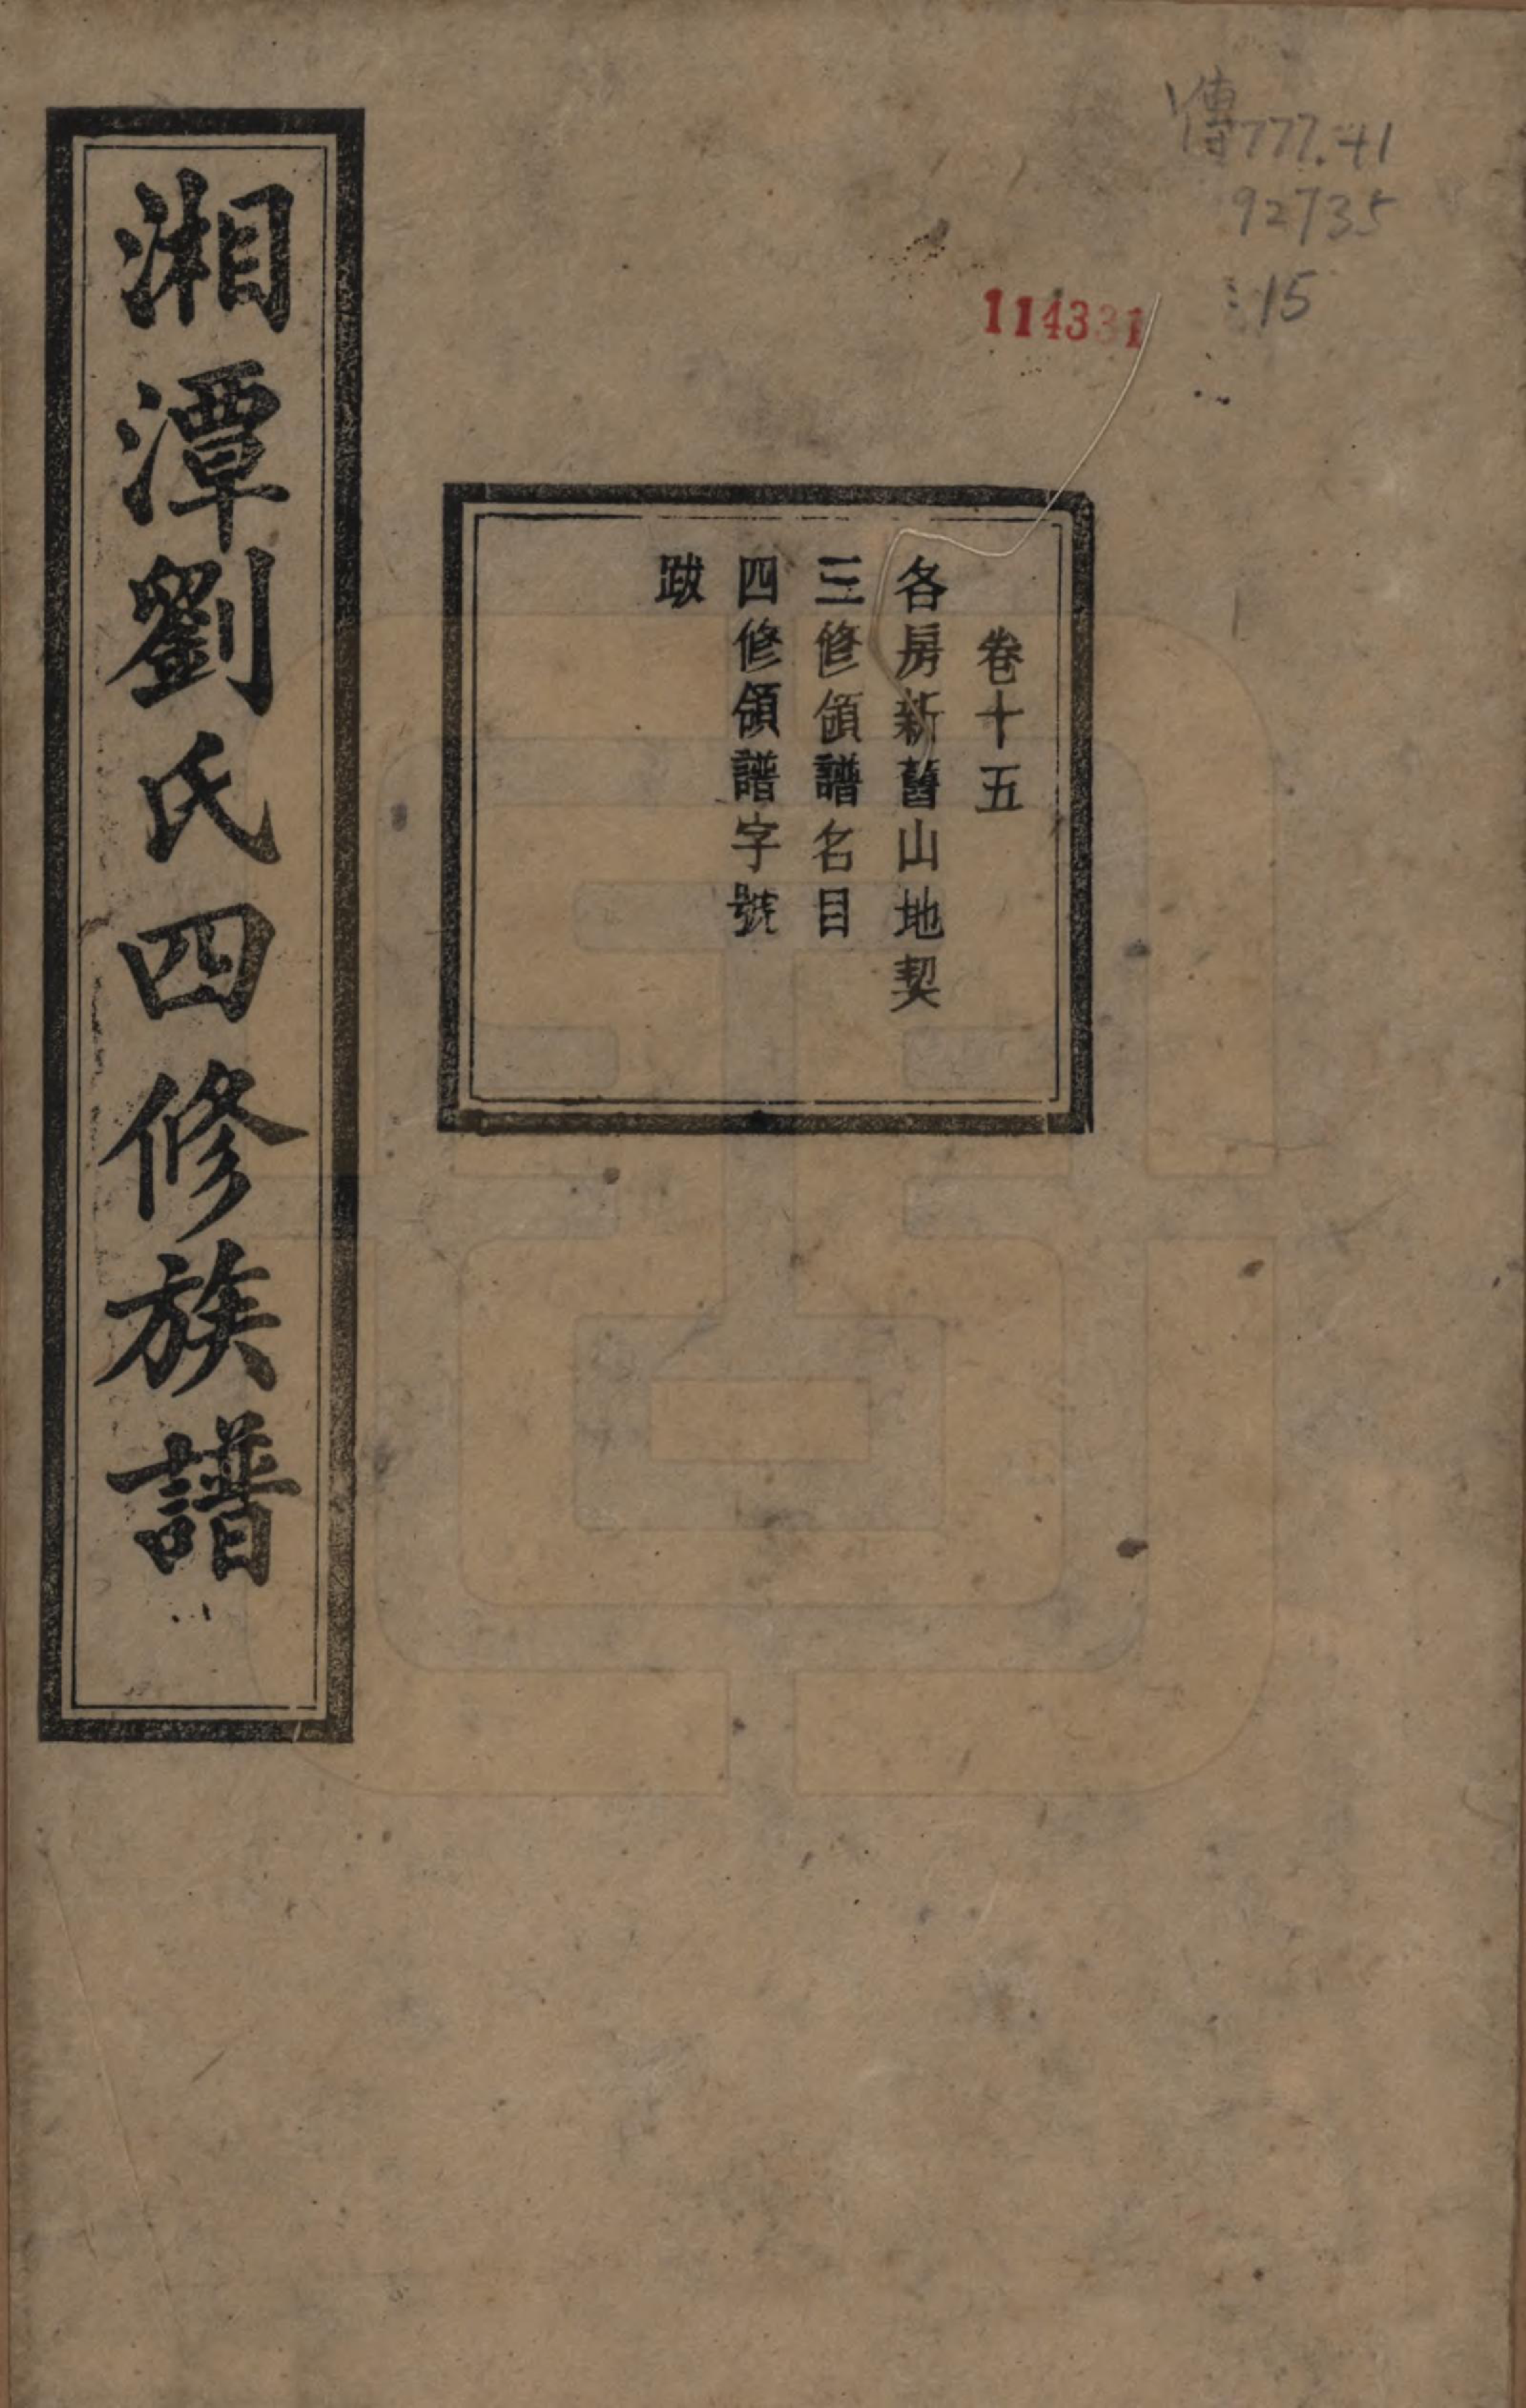 傳777.41
92735
:15
114331
卷十五
各房新舊山地契
三修領譜名目
四修領譜字號
跋
湘潭劉氏四修族譜